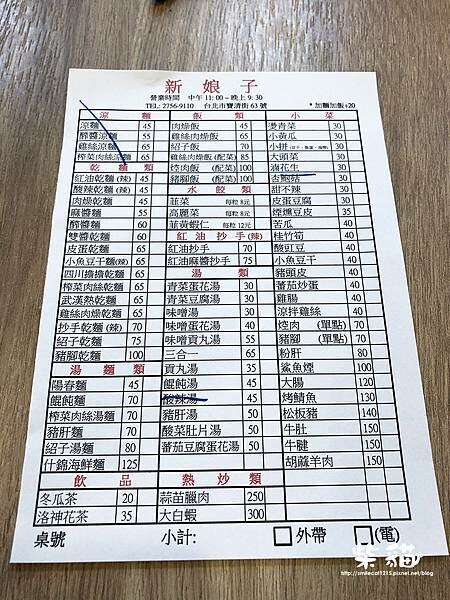 新娘子
營業時間 中午 11:00－晚上 9:30
TEL: 2756-9110 台北市寶清街 63 號
*加麵加飯+20
涼麵類
涼麵 45
醉醬涼麵 55
雞絲涼麵 65
榨菜肉絲涼麵 65
乾麵類
紅油乾麵(辣) 45
酸辣乾麵(辣) 45
肉燥乾麵 45
麻醬麵 55
醉醬麵 60
雙醬乾麵 60
皮蛋乾麵 65
小魚豆干麵(辣) 65
四川擔擔乾麵 65
榨菜肉絲乾麵 65
武漢熱乾麵 65
雞絲肉燥乾麵 65
抄手乾麵(辣) 70
紹子乾麵 75
豬腳乾麵 100
湯麵類
陽春麵 45
餛飩麵 70
榨菜肉絲湯麵 70
豬肝麵 70
紹子湯麵 80
什錦海鮮麵 125
飲品
冬瓜茶 20
洛神花茶 35
飯類
肉燥飯 45
雞絲肉燥飯 65
紹子飯 70
雞絲肉燥飯(配菜) 85
焢肉飯(配菜) 100
豬腳飯(配菜) 100
水餃類
韮菜 每粒 8元
高麗菜 每粒 8元
韮黃蝦仁 每粒 12元
紅油抄手(辣)
紅油抄手 70
紅油麻醬抄手 75
湯類
青菜蛋花湯 30
青菜豆腐湯 30
味噌湯 30
味噌蛋花湯 40
味噌貢丸湯 40
三合一 65
貢丸湯 35
餛飩湯 45
酸辣湯 45
豬肝湯 50
酸菜肚片湯 50
番茄豆腐蛋花湯 50
熱炒類
蒜苗臘肉 250
大白蝦 300
小菜
燙青菜 30
小黃瓜 30
小拼 30
大頭菜 30
滷花生 30
杏鮑菇 30
甜不辣 30
皮蛋豆腐 30
煙燻豆皮 35
苦瓜 40
桂竹筍 40
酸豇豆 40
小魚豆干 40
豬頭皮 40
番茄炒蛋 40
雞腸 40
涼拌雞絲 40
焢肉 (單點) 70
豬腳 (單點) 70
粉肝 80
鯊魚煙 100
大腸 120
烤鯖魚 130
松板豬 140
牛肚 150
牛腱 150
胡蔴羊肉 150
桌號 小計: 外帶 (電)
柴貓
http://smilecat1215.pixnet.net/blog